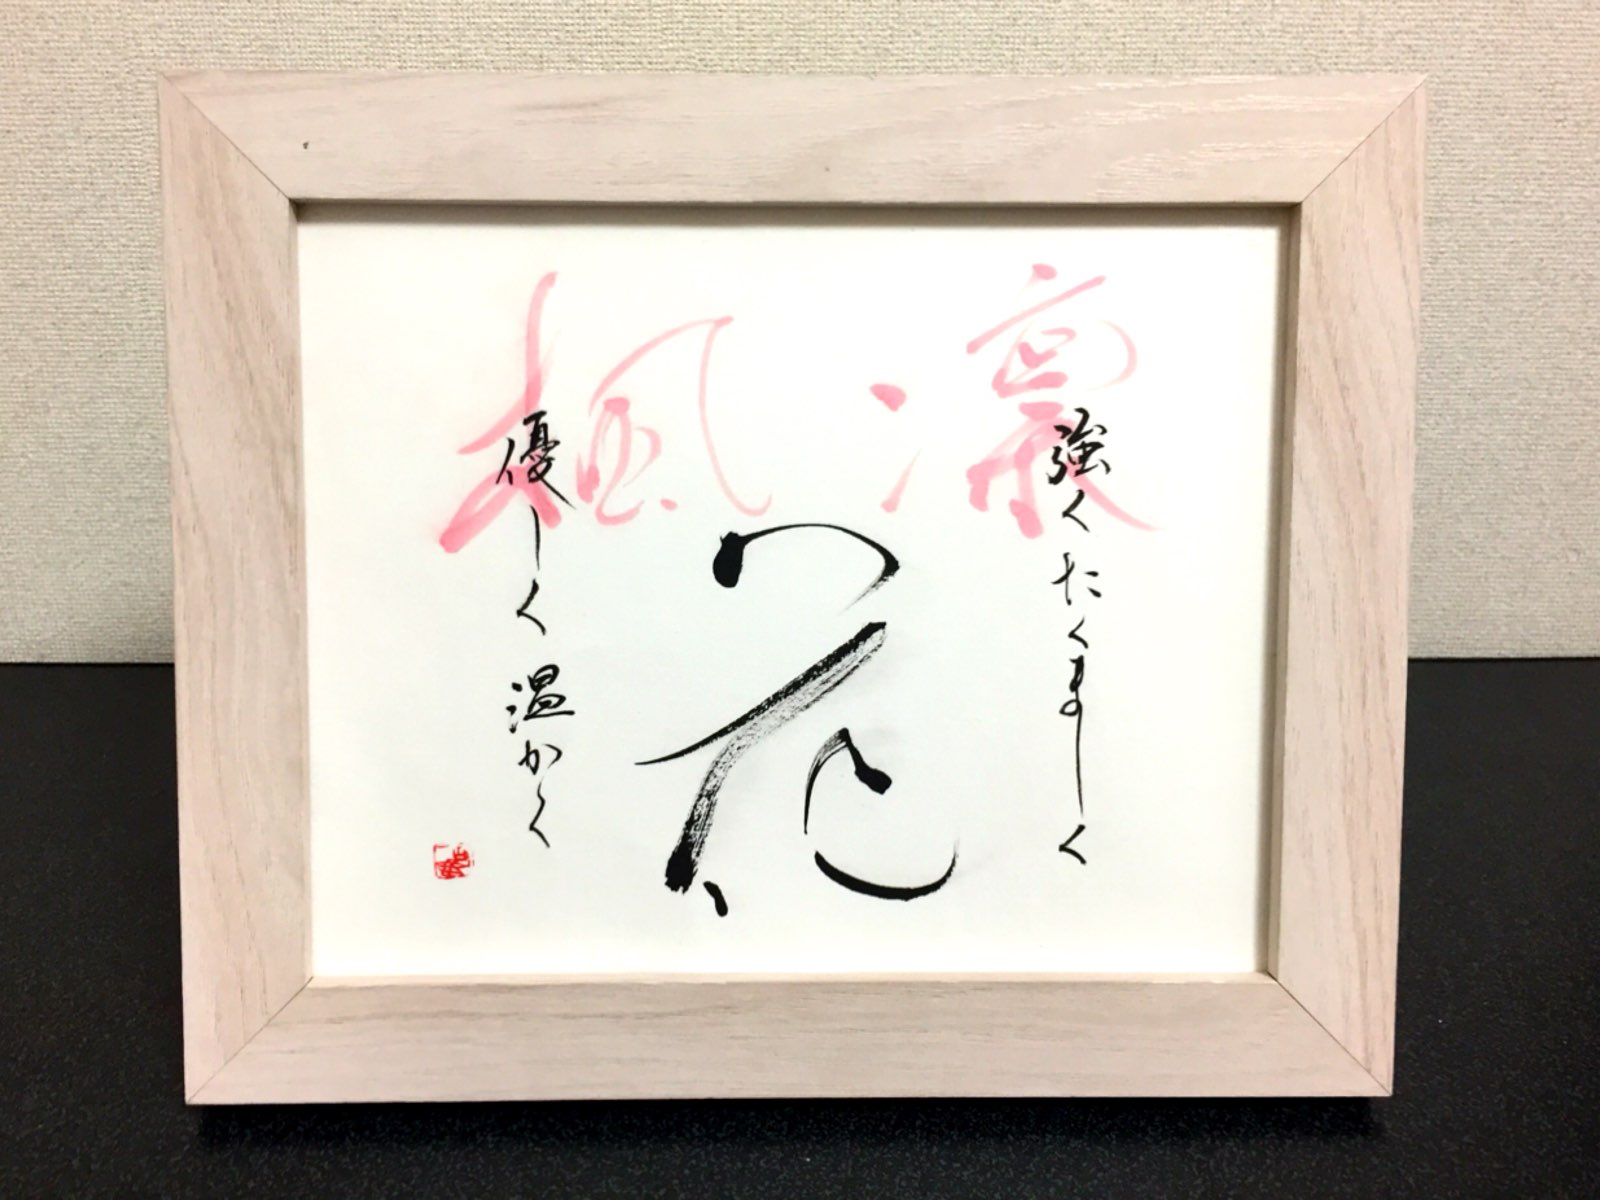 凛
強くたくましく
花
楓
優しく温かく